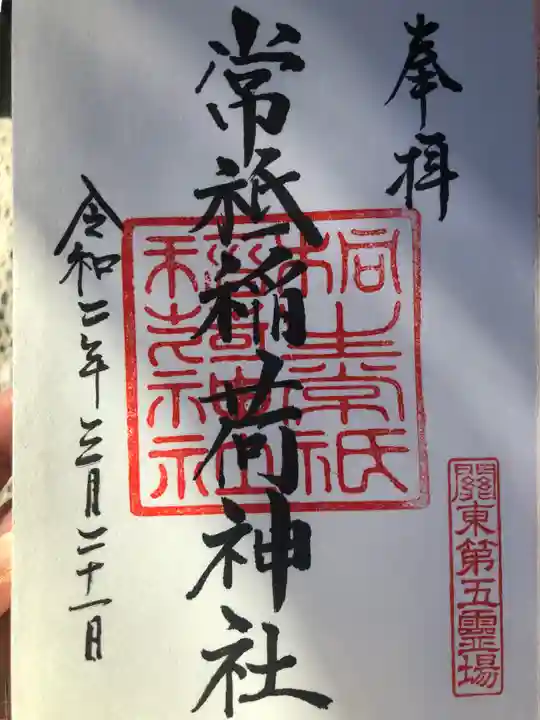 奉拝
常祇稲荷神社
令和二年三月二十一日
關東第五靈場